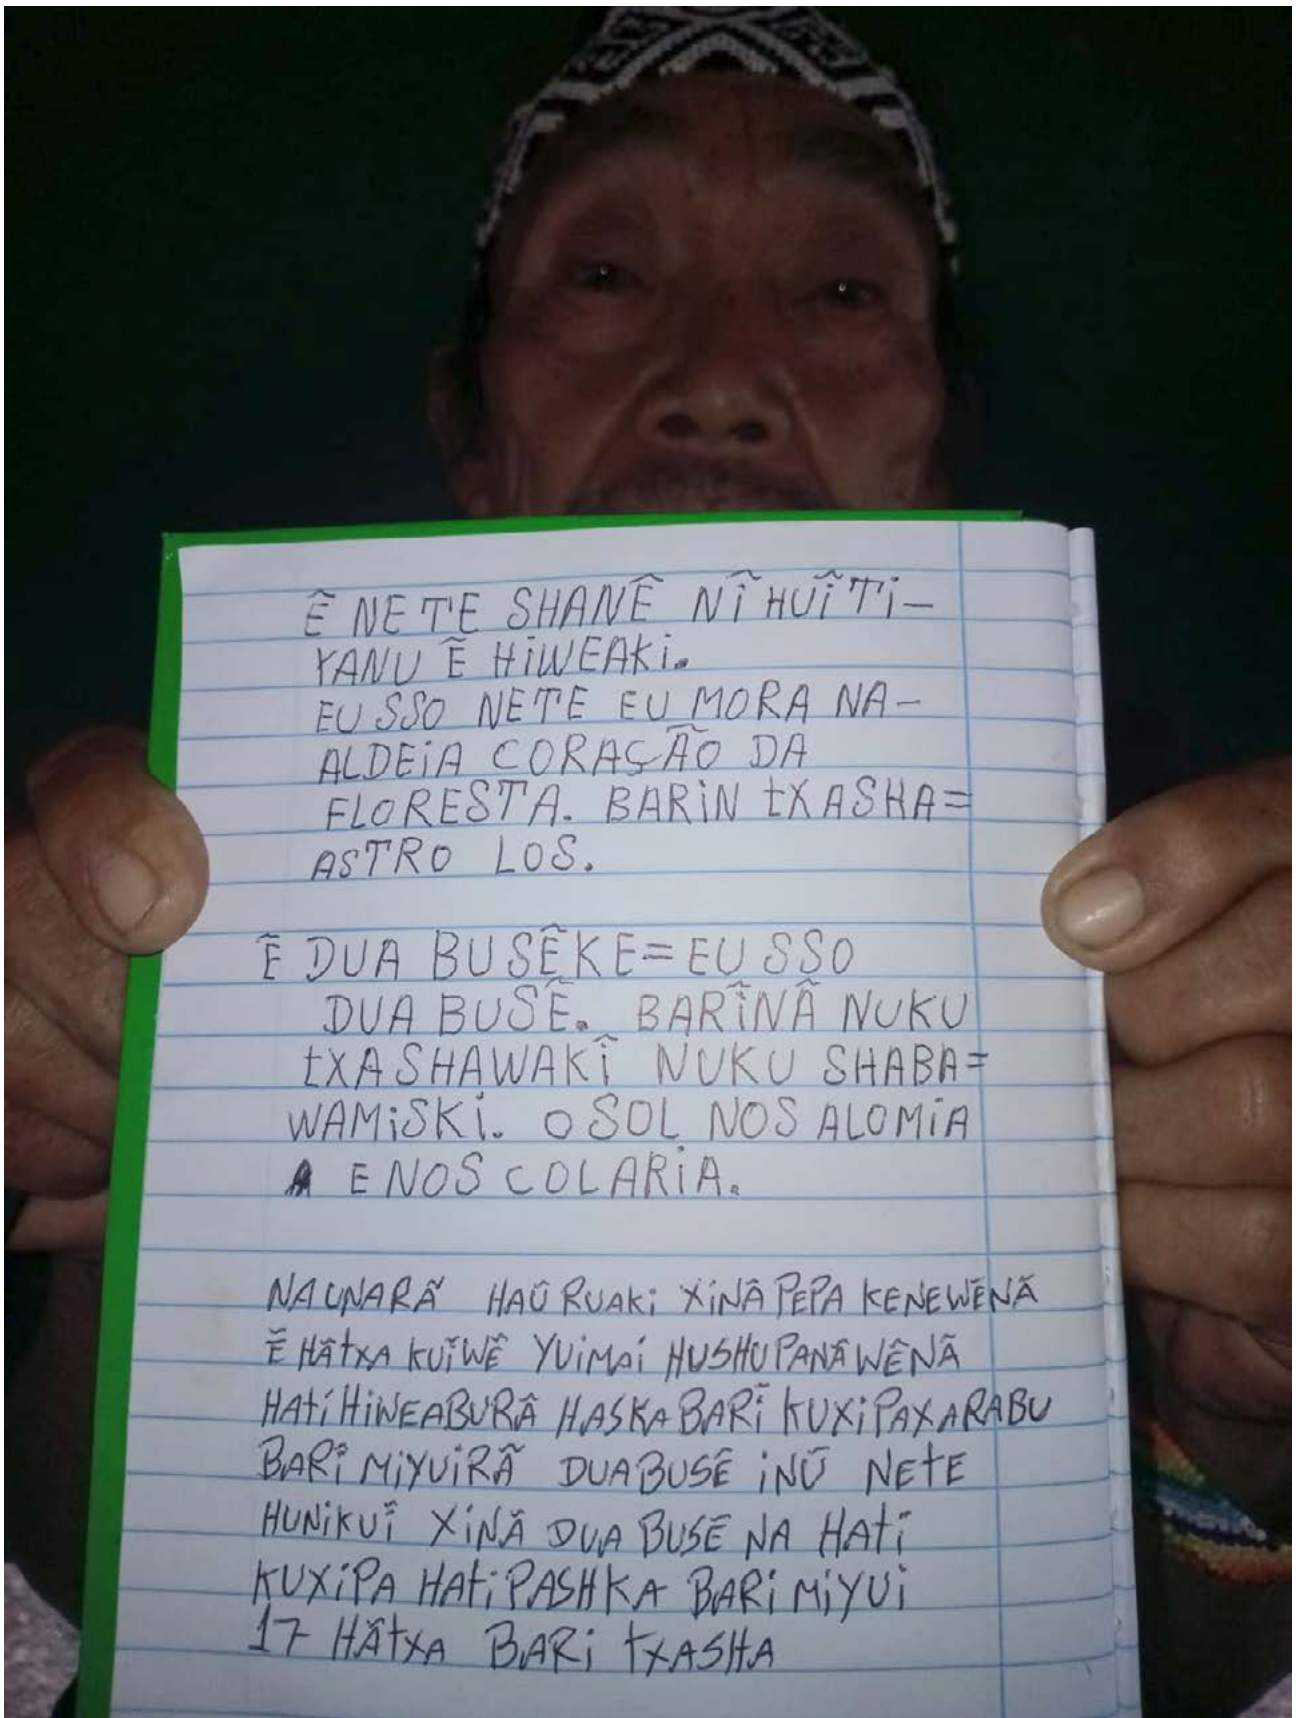 Ẽ NETE SHANẼ NĨ HUĨ TI-
YANU Ẽ HIWEAKI.
EU SSO NETE EU MORA NA-
ALDEIA CORAÇÃO DA
FLORESTA. BARIN TXASHA=
ASTRO LOS.
Ẽ DUA BUSẼKE=EU SSO
DUA BUSẼ. BARĨNÃ NUKU
TXASHAWAKĨ NUKU SHABA=
WAMISKI. O SOL NOS ALOMIA
E NOS COLARIA.
NAUNARÃ HAŨ RUAKI XINÃ PEPA KENEWẼNÃ
Ẽ HÃTXA KUĨWẼ YUIMAI HUSHUPANÃWẼNÃ
HATI HIWEABURÃ HASKA BARĨ KUXIPAXARABU
BARĨ MIYUIRÃ DUA BUSẼ INŨ NETE
HUNIKUĨ XINÃ DUA BUSẼ NA HATI
KUXIPA HATIPASHKA BARI MIYUI
17 HÃTXA BARI TXASHA